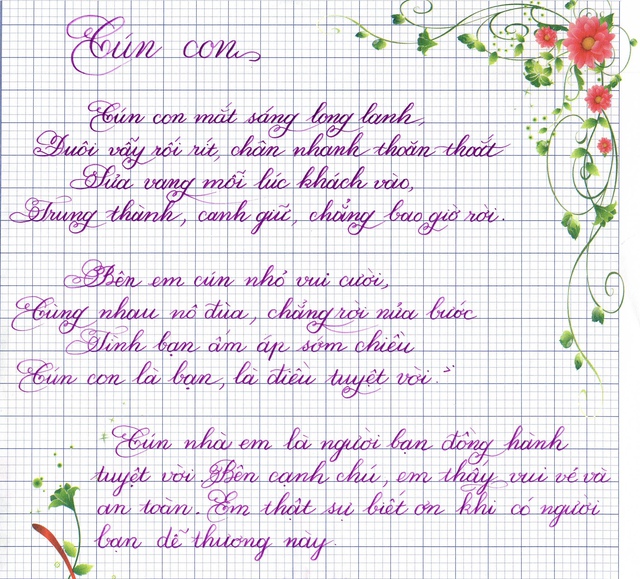 Cún con
Cún con mắt sáng long lanh,
Đuôi vẫy rối rít, chân nhanh thoăn thoắt
Sủa vang mỗi lúc khách vào,
Trung thành, canh giữ, chẳng bao giờ rời.
Bên em cún nhỏ vui cười,
Cùng nhau nô đùa, chẳng rời nửa bước
Tình bạn ấm áp sớm chiều
Cún con là bạn, là điều tuyệt vời.
Cún nhà em là người bạn đồng hành
tuyệt vời. Bên cạnh chú, em thấy vui vẻ và
an toàn. Em thật sự biết ơn khi có người
bạn dễ thương này.